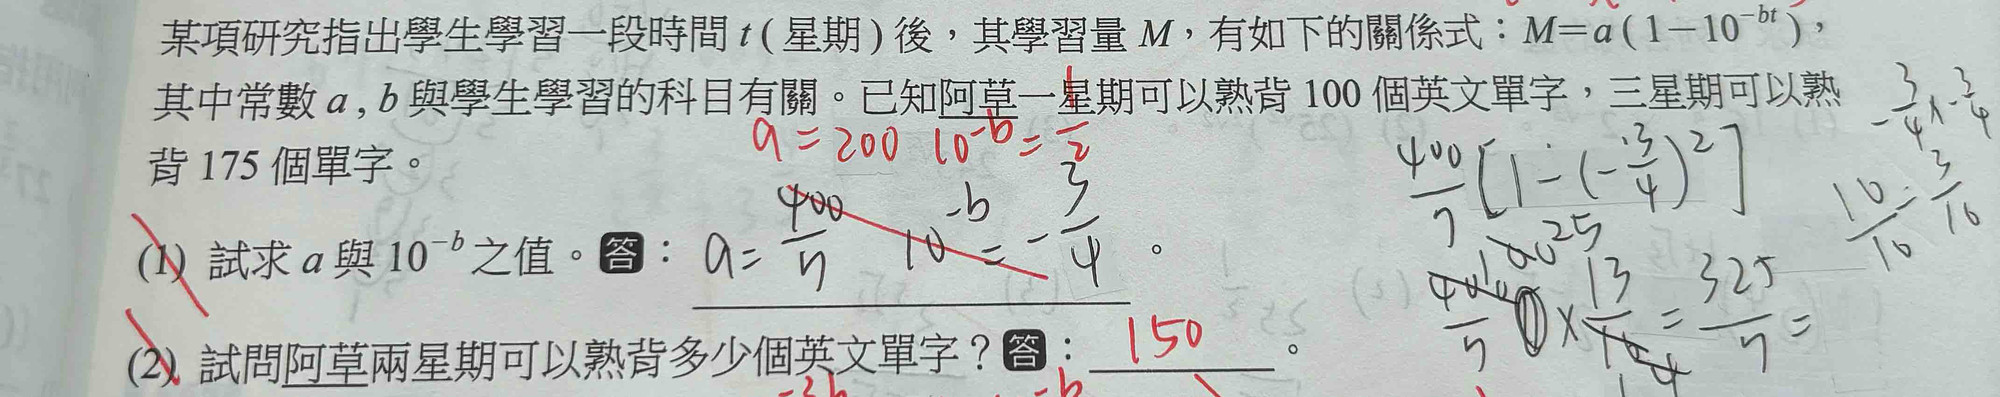 某項研究指出學生學習一段時間 t ( 星期 ) 後，其學習量 M，有如下的關係式：M=a ( 1−10^{-bt} )，
其中常數 a , b 與學生學習的科目有關。已知阿草一星期可以熟背 100 個英文單字，三星期可以熟
背 175 個單字。
a = 200 10^{-b} = 1/2
(1) 試求 a 與 10^{-b} 之值。答： a = 400/7 10^{-b} = -3/4 。
(2) 試問阿草兩星期可以熟背多少個英文單字？答： 150 。
-3/4 × -3/4
400/7 [1 - (-3/4)^2]
× 13 = 325/7 =